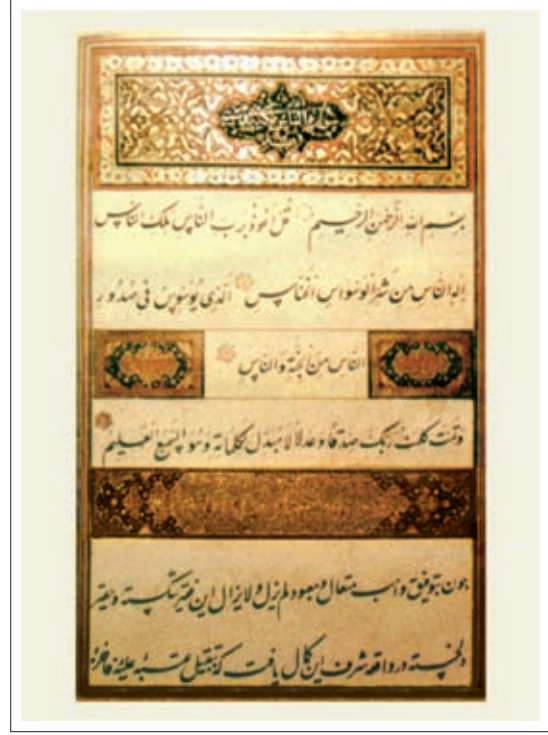 بسم الله الرحمن الرحیم قل اعوذ برب الناس ملک الناس
اله الناس من شر الوسواس الخناس الذی یوسوس فی صدور
الناس من الجنة والناس
وتمت کلمت ربک صدقا وعدلا لا مبدل لکلماته وهو السمیع العلیم
چون بتوفیق واهب متعال ومعبود لم یزل ولا یزال این فقیر شکسته و
در واقعه شرف این کمال یافت که بتقبیل عتبه علیه